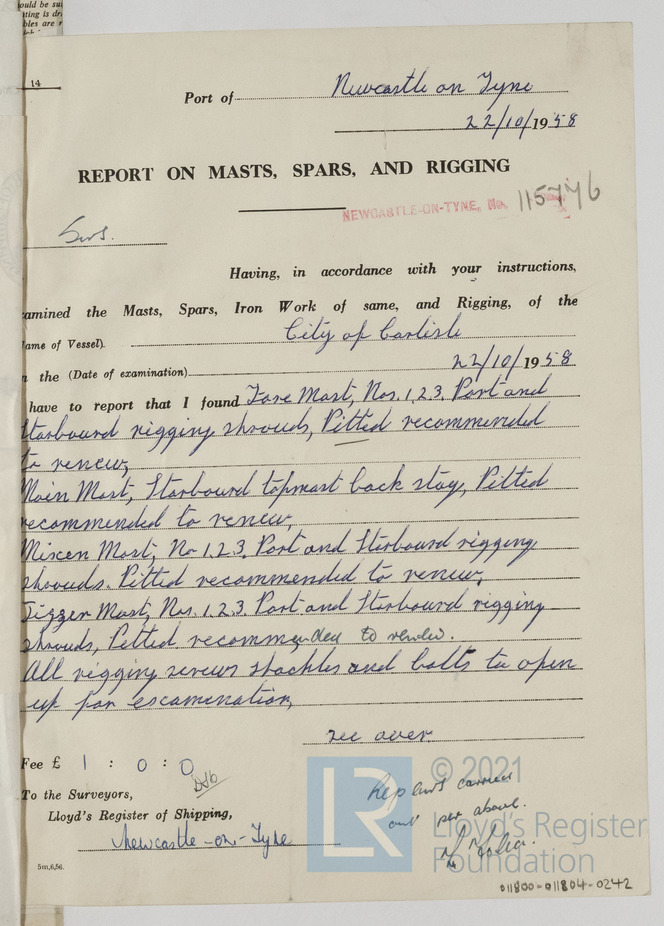 ould be su
ting is dr
bles are r
14
Port of Newcastle on Tyne
22/10/1958
REPORT ON MASTS, SPARS, AND RIGGING
NEWCASTLE-ON-TYNE, No. 115776
Sirs.
Having, in accordance with your instructions,
amined the Masts, Spars, Iron Work of same, and Rigging, of the
ame of Vessel). City of Carlisle
n the (Date of examination) 22/10/1958
have to report that I found Fore Mast, Nos. 1,2,3. Port and
Starbourd rigging shrouds, Pitted recommended
to renew,
Main Mast, Starbourd topmast back stay, Pitted
recommended to renew,
Mixen Mast, No 1.2.3. Port and Starbourd rigging
shrouds. Pitted recommended to renew,
Jigger Mast, Nos. 1.2.3. Port and Starbourd rigging
shrouds, Pitted. recommended to renew.
All rigging screws shackles and bolts to open
up for escamenation,
see over
Fee £ 1 : 0 : 0
To the Surveyors,
Lloyd's Register of Shipping,
Newcastle-on-Tyne
5m,6,56.
Repairs carried
out per above.
LR © 2021
Lloyd's Register
Foundation
011800-011804-0242